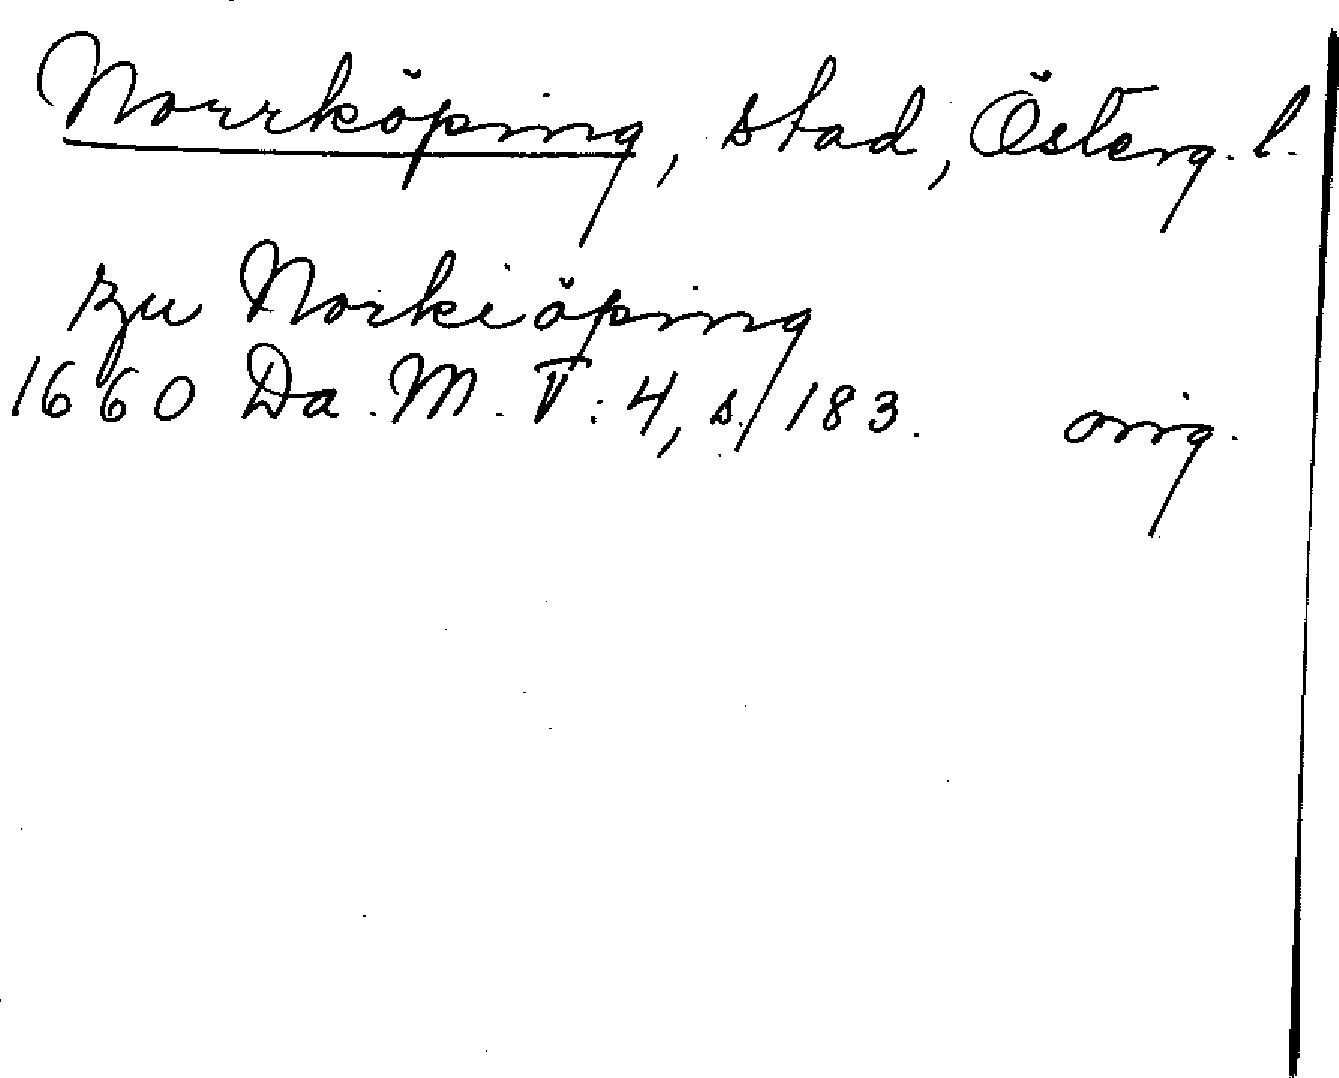 Norrköping, stad, Österg. l.
zu Norkiöping
1660 Da. M. V: 4, s. 183. orig.